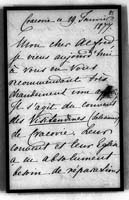 Cracovie ce 29 Janvier
1877
Mon cher Alfred
je viens aujourd'hui
à vous et Vous
recommander très
chaudement une
Il s'agit du couvent
des Visitandines
de Cracovie, leur
couvent et leur Eglise
a un absolument
besoin de réparations